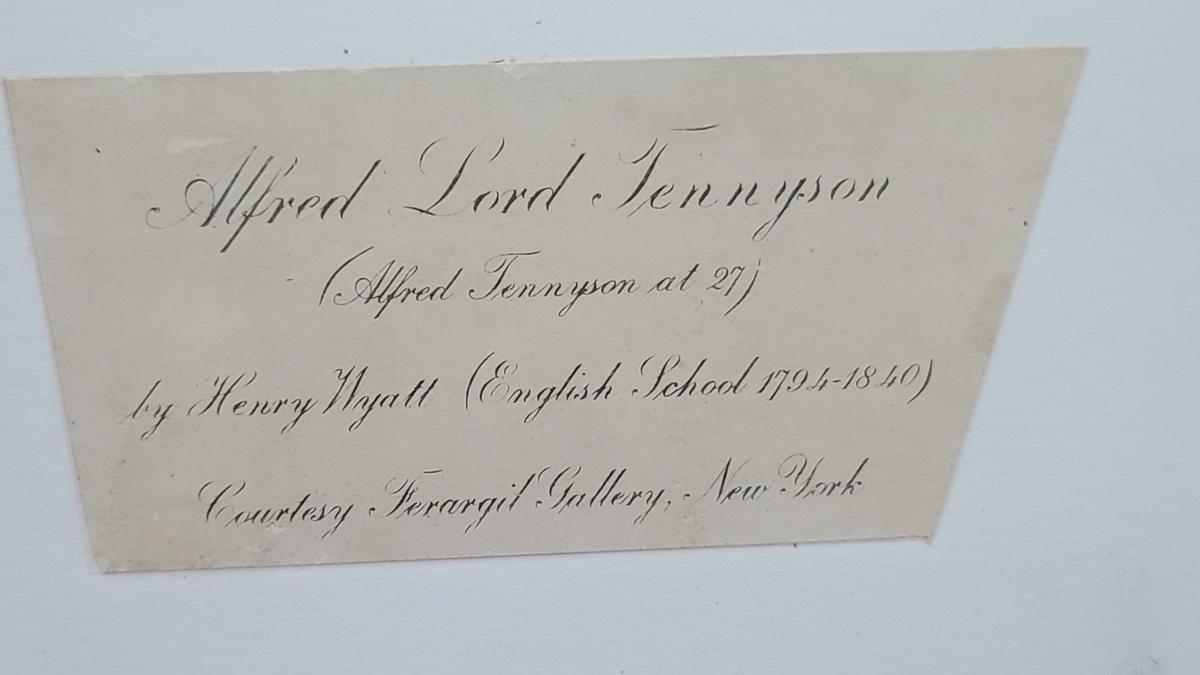 Alfred Lord Tennyson
(Alfred Tennyson at 27)
by Henry Wyatt (English School 1794-1840)
Courtesy Ferargil Gallery, New York